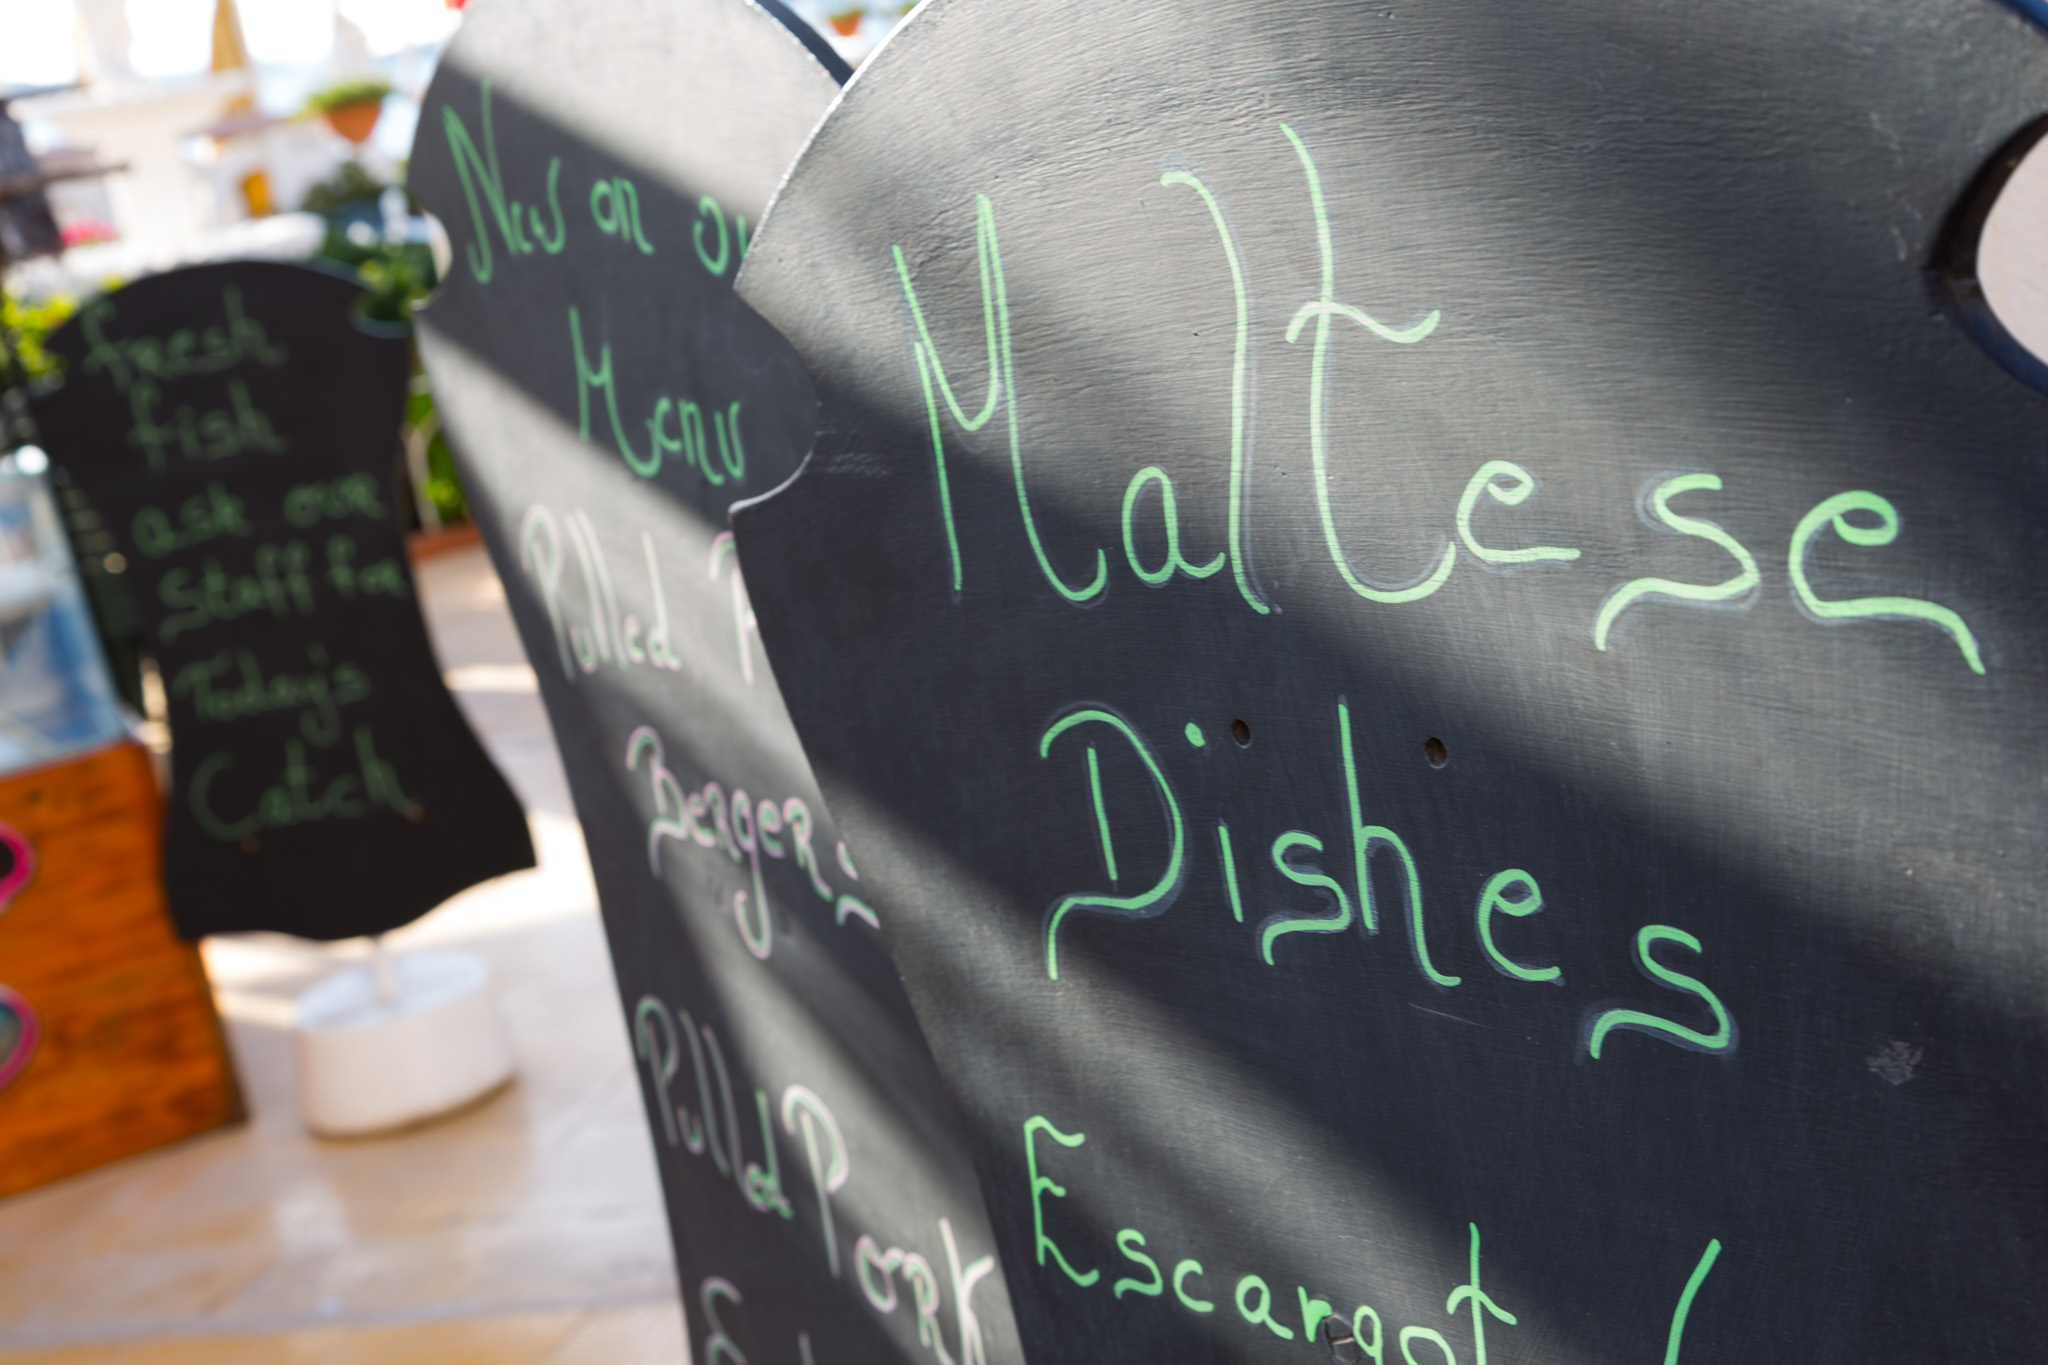 fresh
fish
ask our
staff for
Today's
Catch
New on ou
Menu
Pulled P
Berger
Pulled Pork
Maltese
Dishes
Escargot /